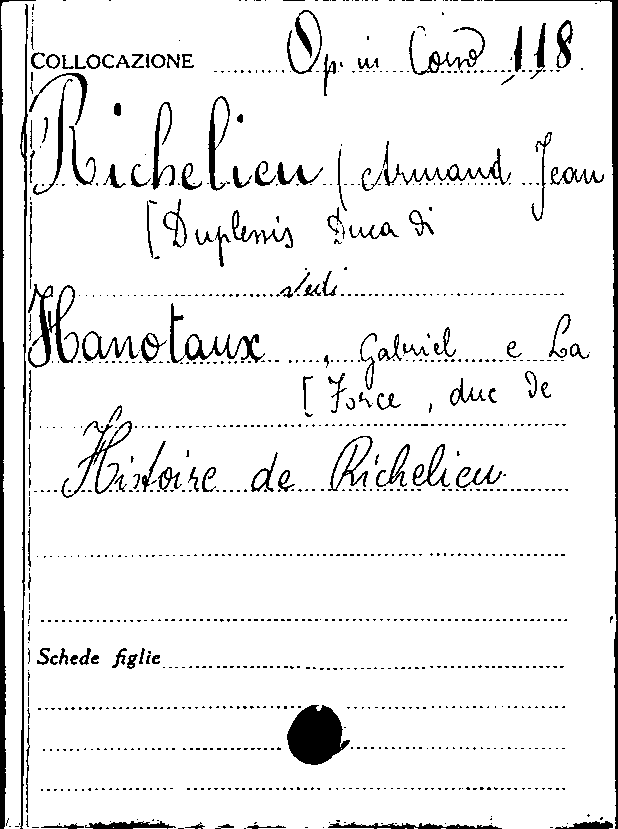 COLLOCAZIONE Op. in Corso 118
Richelieu (Armand Jean
[Duplessis Duca di
Vedi
Hanotaux, Gabriel e La
[Force, duc de
Histoire de Richelieu
Schede figlie